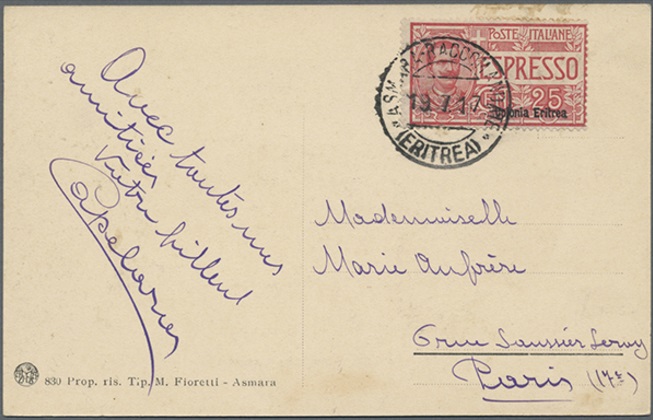 Avec toutes mes
amitiés
Votre
POSTE ITALIANE
ESPRESSO
25
Colonia Eritrea
ASMARA-RACCOMANDATE
19.7.17
(ERITREA)
Mademoiselle
Marie Aufrère
6 rue Saussier Leroy
Paris (17e)
830 Prop. ris. Tip. M. Fioretti - Asmara